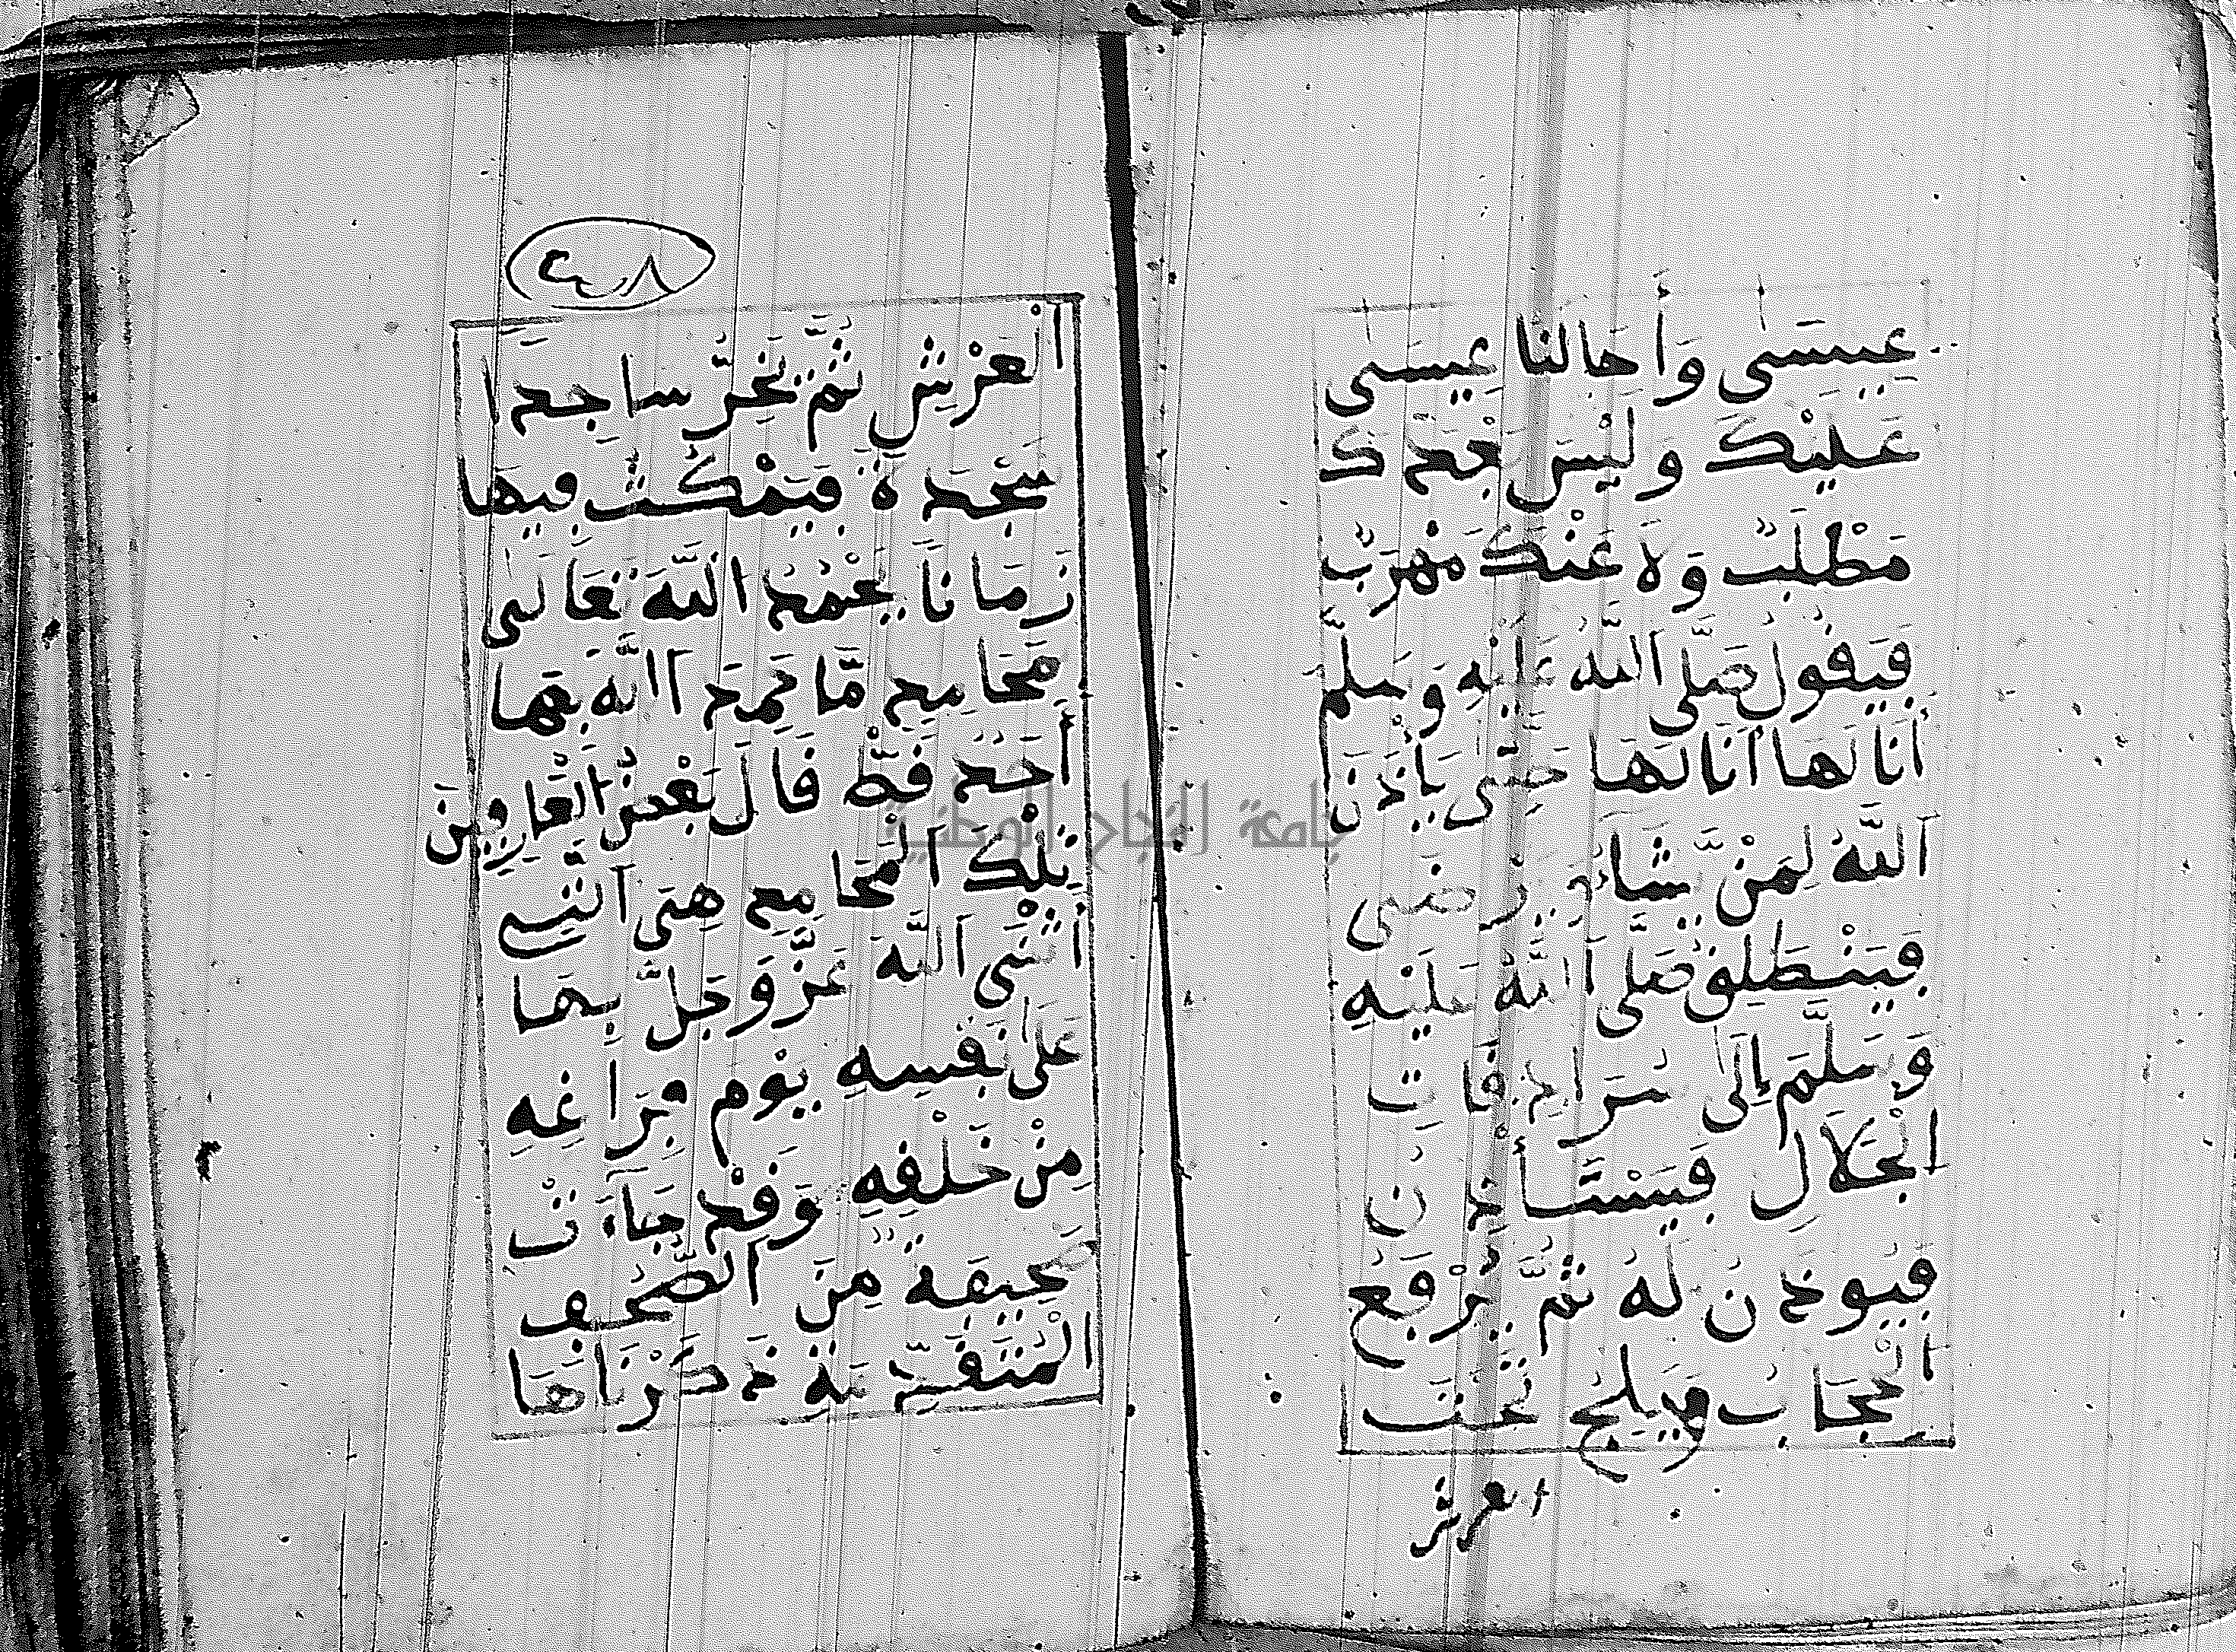 عِيسَى وَأَحَالنَا عِيسَى
عَلَيْكَ وَلَيْسَ بَعْدَكَ
مَطْلَبٌ وَلَا عَنْكَ مَهْرَبٌ
فَيَقُولُ صَلَّى اللَّهُ عَلَيْهِ وَسَلَّمَ
أَنَا لَهَا أَنَا لَهَا حَتَّى يَأْذَنَ
اللَّهُ لِمَنْ يَّشَاءُ وَيَرْضَى
فَيَنْطَلِقُ صَلَّى اللَّهُ عَلَيْهِ
وَسَلَّمَ إِلَى سُرَادِقَاتِ
الْجَلَالِ فَيَسْتَأْذِنُ
فَيُوذَنُ لَهُ ثُمَّ يُرْفَعُ
الْحِجَابُ وَيَلِجُ تَحْتَ
العرش
٢٠٨
الْعَرْشِ ثُمَّ يَخِرُّ سَاجِدًا
سَجْدَةً فَيَمْكُثُ فِيهَا
زَمَانًا يَحْمَدُ اللَّهَ تَعَالَى
بِمَحَامِدٍ مَّا حَمِدَ اللَّهَ بِهَا
أَحَدٌ قَطُّ قَالَ بَعْضُ الْعَارِفِينَ
تِلْكَ الْمَحَامِدُ هِيَ الَّتِي
أَثْنَى اللَّهُ عَزَّ وَجَلَّ بِهَا
عَلَى نَفْسِهِ يَوْمَ فَرَاغِهِ
مِنْ خَلْقِهِ وَقَدْ جَاءَتْ
صَحِيفَةٌ مِنَ الصُّحُفِ
الْمُتَقَدِّمَةِ ذَكَرْنَاهَا
جامعة النجاح الوطنية